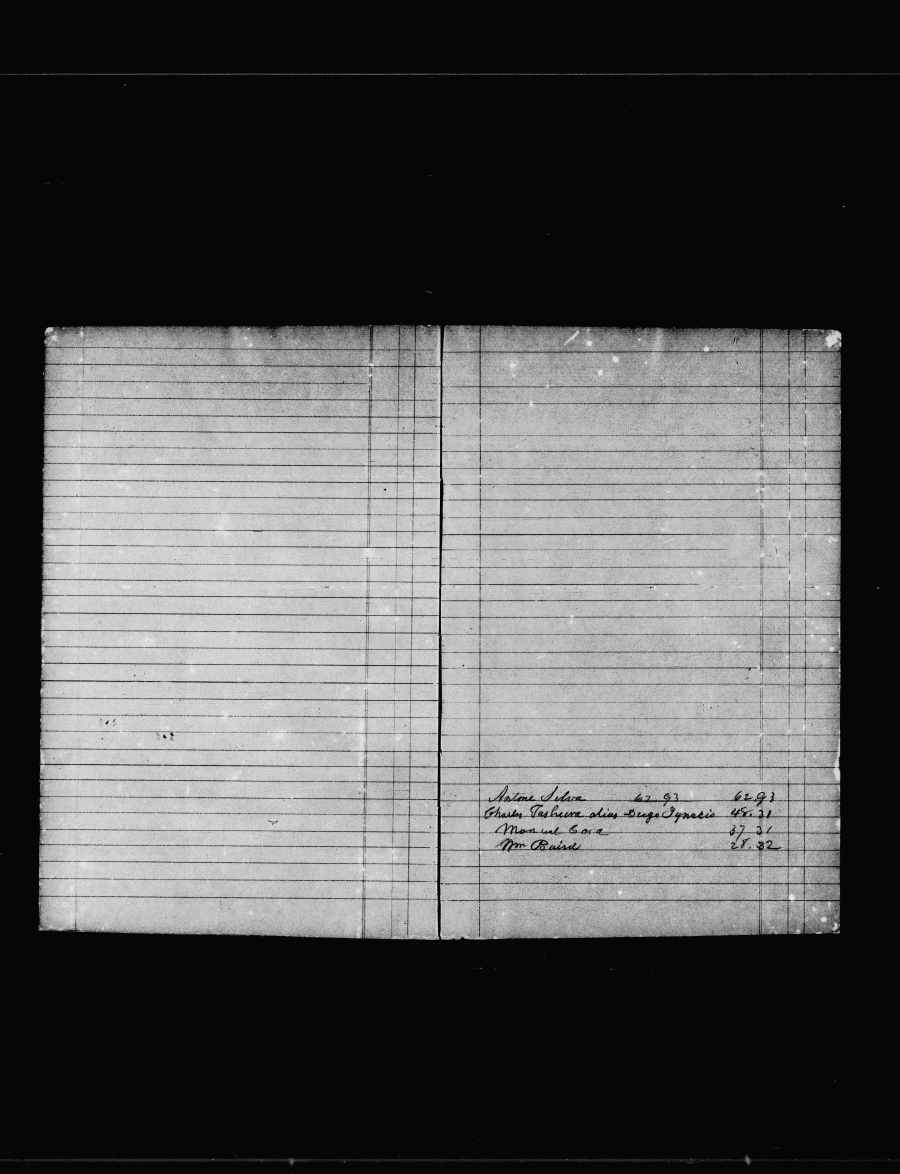 Antone Silva 62.93 62.93
Charles Tasheira alias Diego Ignacio 48.31
Manuel Cora 37 31
Wm Baird 28.32